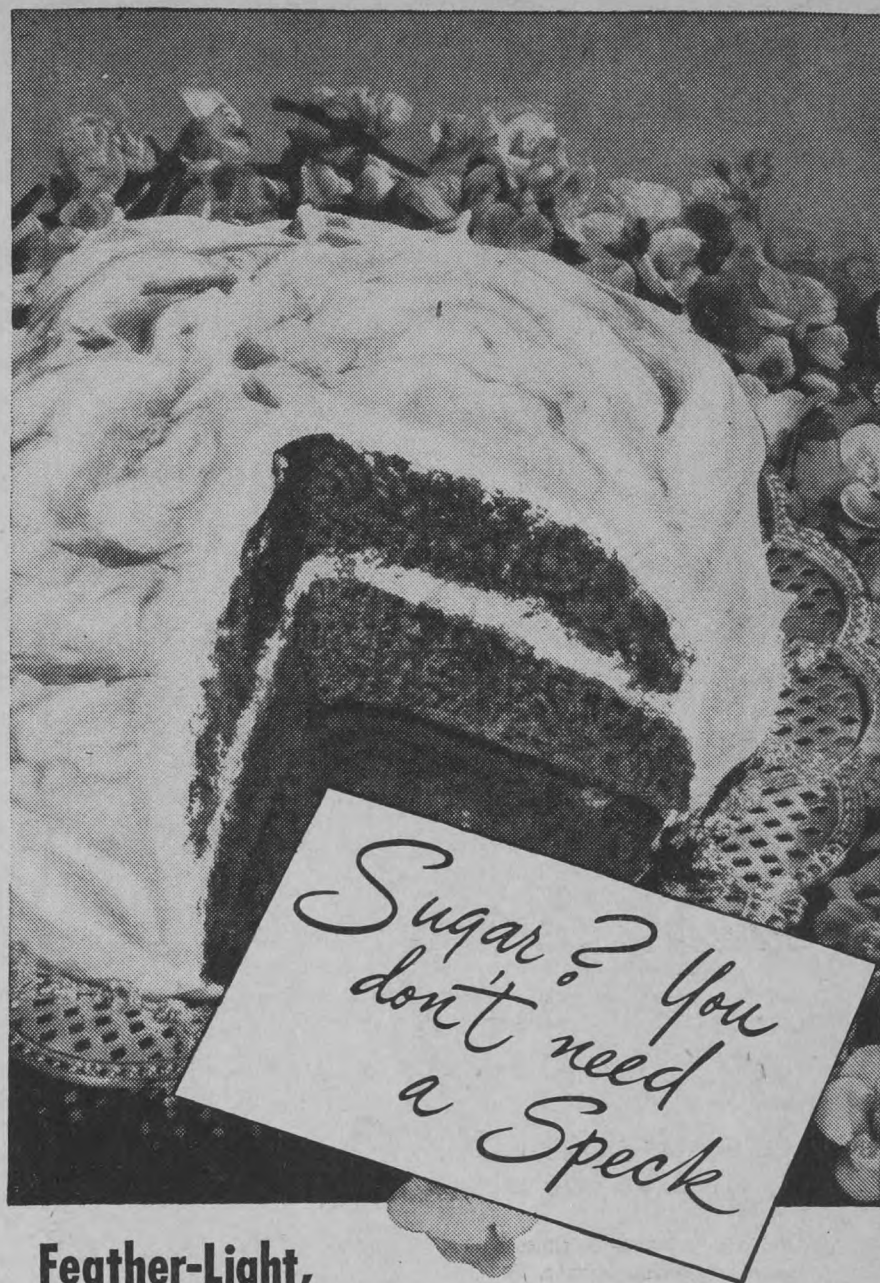 Sugar? You
don't need
a Speck
Feather-Light,